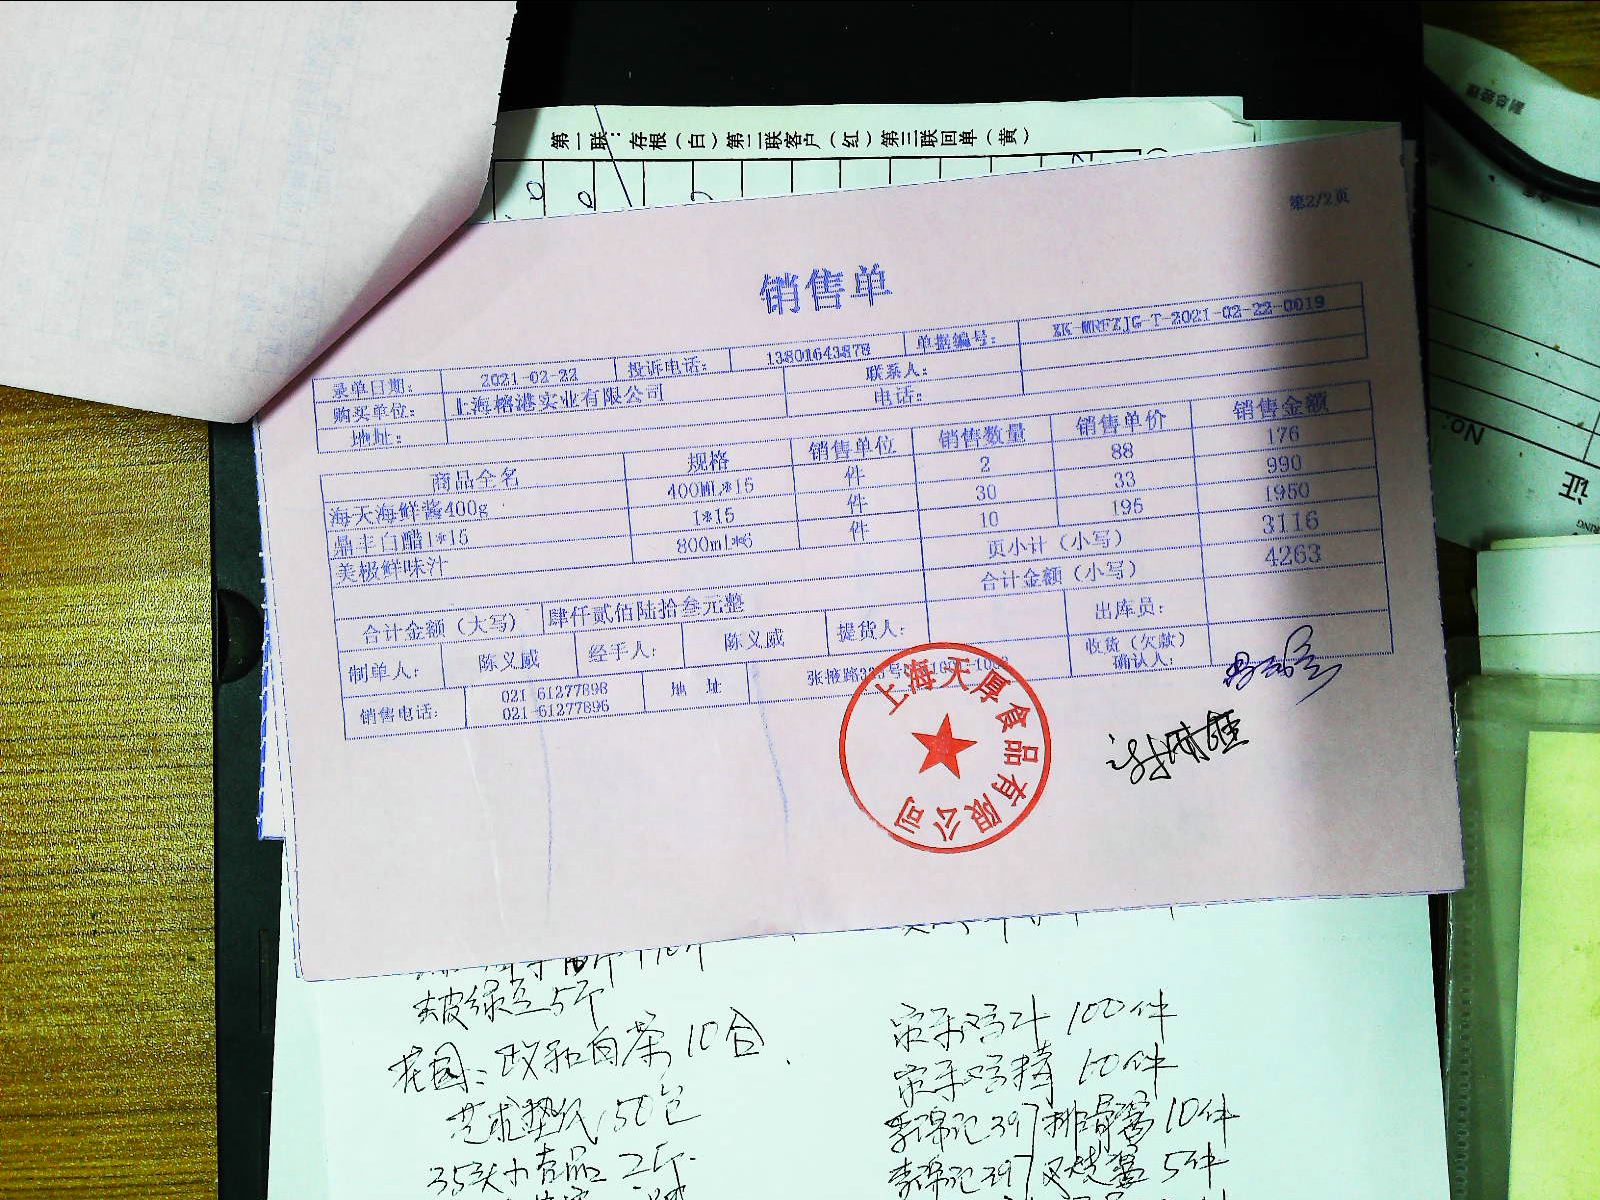 副总经理
第一联：存根（白）第二联客户（红）第三联回单（黄）
第2/2页
销售单
录单日期： 2021-02-22 投诉电话： 13801643878 单据编号： XK-MRFZJG-T-2021-02-22-0019
购买单位： 上海榕港实业有限公司 联系人：
地址： 电话：
商品全名 规格 销售单位 销售数量 销售单价 销售金额
海天海鲜酱400g 400ML*15 件 2 88 176
鼎丰白醋1*15 1*15 件 30 33 990
美极鲜味汁 800ml*6 件 10 195 1950
页小计（小写） 3116
合计金额（大写） 肆仟贰佰陆拾叁元整 合计金额（小写） 4263
制单人： 陈义威 经手人： 陈义威 提货人： 出库员：
销售电话： 021-61277898 021-61277896 地址 张掖路335号 收货（欠款）确认人：
上海天厚食品有限公司
No:
证
去皮绿豆5斤
花园：政和白茶10合
艺术垫纸150包
35头小吉品2斤
家乐鸡汁100件
家乐鸡精10件
李锦记397排骨酱10件
李锦记397叉烧酱5件